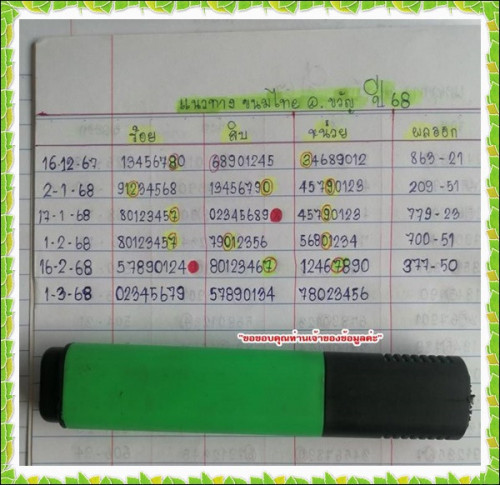 แนวทาง ขนมไทย อ. ขวัญ ปี 68
ร้อย สิบ หน่วย ผลออก
16-12-67 13456780 68901245 34689012 863-21
2-1-68 91234568 13456790 45790123 209-51
17-1-68 80123457 02345689 45790123 779-23
1-2-68 80123457 79012356 56801234 700-51
16-2-68 57890124 80123467 12467890 377-50
1-3-68 02345679 57890134 78023456
"ขอขอบคุณท่านเจ้าของข้อมูลค่ะ"